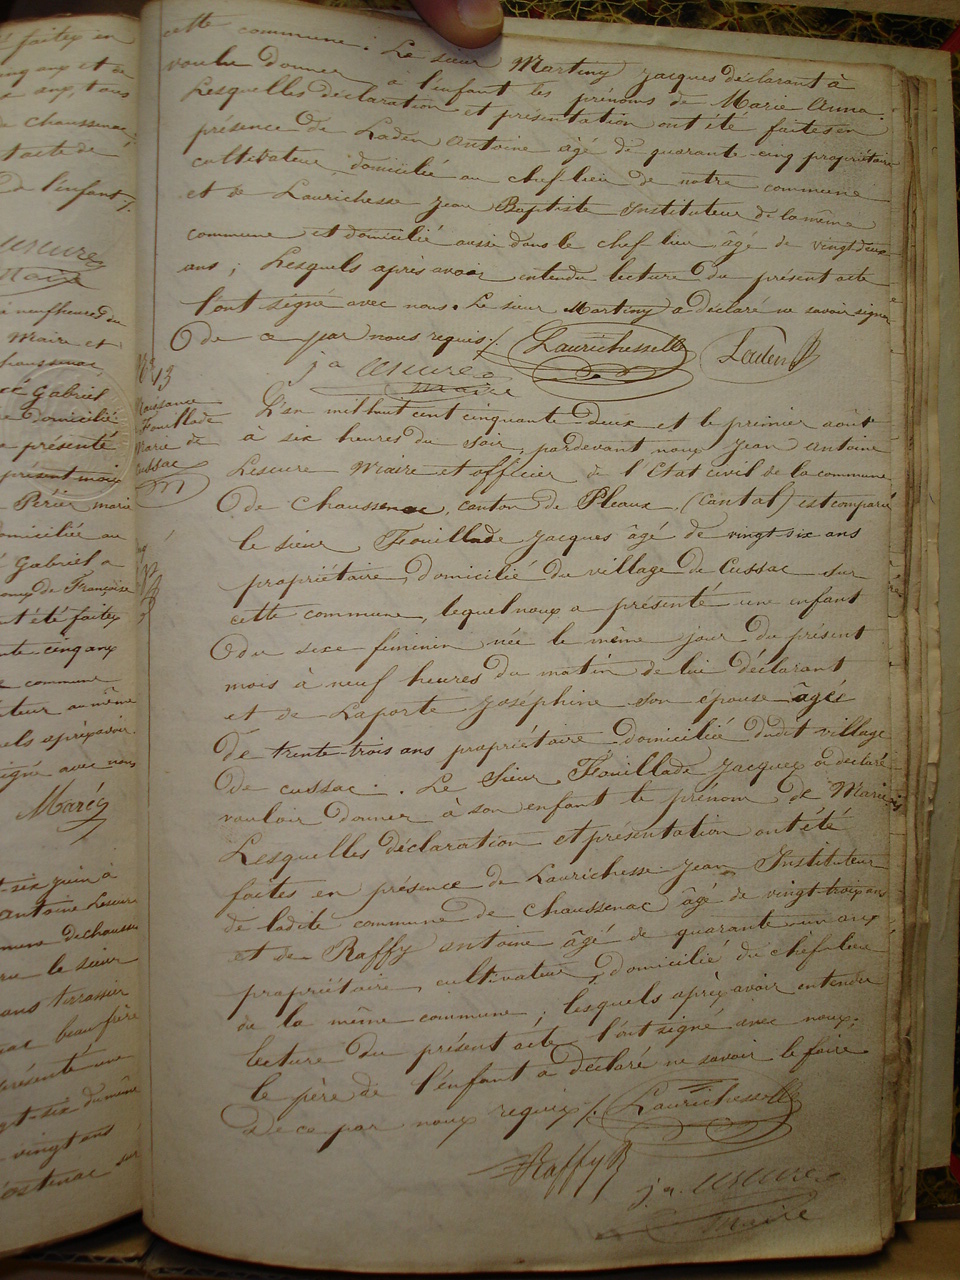 faites en
ans, tous
de chaussenac
l'acte de
de l'enfant /.
Maire
à neuf heures du
Maire et
chaussenac,
Gabriel
domicilié
a présenté
présent mois
Périer marie
domiciliée au
Gabriel a
de Françoise
ont été faites
cinq ans
commune
au même
après avoir
signé avec nous
Maréy
-six juin à
antoine Lescure
de chausse
le sieur
ans terrassier
beau frère
présenté une
-six du même
vingt ans
sur
cette commune. Le sieur Martiny Jacques déclarant à
voulu donner à l'enfant les prénoms de Marie Anna.
Lesquelles déclaration et présentation ont été faites en
présence de Laden Antoine âgé de quarante cinq propriétaire
cultivateur domicilié au chef lieu de notre commune
et de Laurichesse Jean Baptiste Instituteur de la même
commune et domicilié aussi dans le chef lieu âgé de vingt deux
ans ; Lesquels après avoir entendu lecture du présent acte
l'ont signé avec nous. Le sieur Martiny a déclaré ne savoir signer
de ce par nous requis /. Laurichesse Laden
j a Lescure
maire
No 13
Naissance
Fouillade
Marie de
Cussac
L'an mil huit cent cinquante deux et le premier août
à six heures du soir, pardevant nous Jean Antoine
Lescure Maire et officier de l'Etat civil de la commune
de chaussenac, canton de Pleaux, (Cantal) est comparu
le sieur Fouillade Jacques âgé de vingt-six ans
propriétaire, domicilié du village de Cussac sur
cette commune, lequel nous a présenté une enfant
du sexe féminin née le même jour du présent
mois à neuf heures du matin de lui déclarant
et de Laporte Joséphine son épouse âgée
de trente-trois ans propriétaire domiciliée dudit village
de cussac. Le Sieur Fouillade Jacques a déclaré
vouloir donner à son enfant le prénom de Marie
Lesquelles déclaration et présentation ont été
faites en présence de Laurichesse Jean Instituteur
de ladite commune de Chaussenac âgé de vingt-trois ans
et de Raffy antoine âgé de quarante-un ans
propriétaire, cultivateur, domicilié du chef-lieu
de la même commune ; lesquels après avoir entendu
lecture du présent acte l'ont signé avec nous,
le père de l'enfant a déclaré ne savoir le faire
de ce par nous requis /. Laurichesse
Raffy
j. a. Lescure
maire